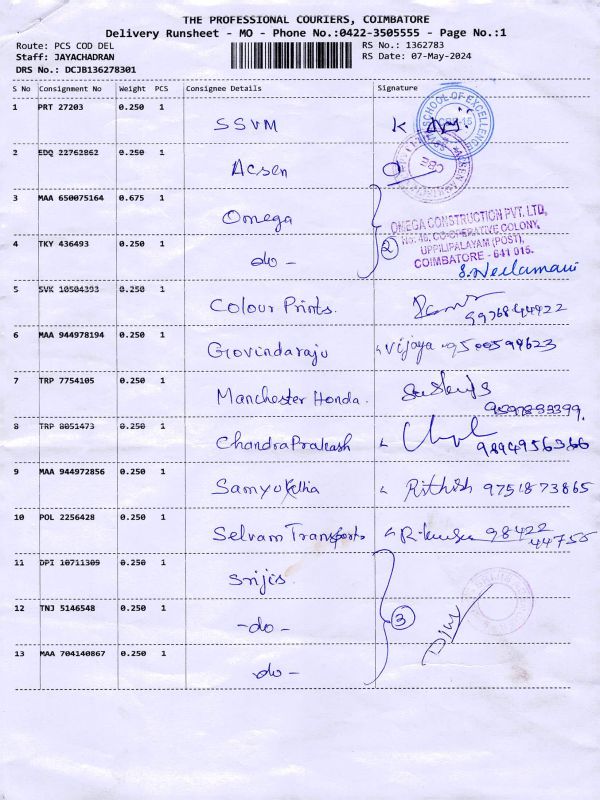 THE PROFESSIONAL COURIERS, COIMBATORE
Delivery Runsheet - MO - Phone No.:0422-3505555 - Page No.:1
Route: PCS COD DEL RS No.: 1362783
Staff: JAYACHADRAN RS Date: 07-May-2024
DRS No.: DCJB136278301
S No Consignment No Weight PCS Consignee Details Signature
1 PRT 27203 0.250 1 SSVM
SCHOOL OF EXCELLENCE
2 EDQ 22762862 0.250 1 Acsen
3 MAA 650075164 0.675 1 Omega
OMEGA CONSTRUCTION PVT. LTD,
No: 46, CO-OPERATIVE COLONY,
UPPILIPALAYAM (POST),
COIMBATORE - 641 015.
4 TKY 436493 0.250 1 -do- 2
S.Neelamani
5 SVK 10504393 0.250 1 Colour Prints.
9976844922
6 MAA 944978194 0.250 1 Govindaraju Vijaya 9500599623
7 TRP 7754105 0.250 1 Manchester Honda.
8 TRP 8051473 0.250 1 ChandraPrakash
9894956366
9 MAA 944972856 0.250 1 Samyuktha Rithish 9751873865
10 POL 2256428 0.250 1 Selvam Transports 98422
44755
11 DPI 10711309 0.250 1 Srijis
12 TNJ 5146548 0.250 1 -do- 3
13 MAA 704140867 0.250 1 -do-